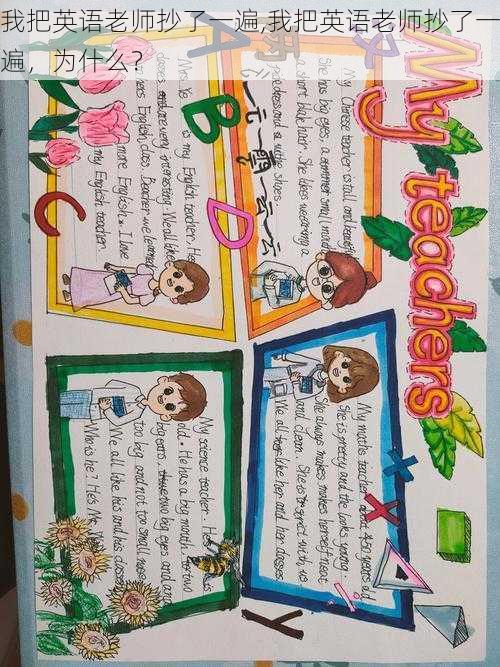 我把英语老师抄了一遍,我把英语老师抄了一
遍，为什么？
My teachers
A
B
C
D
Mrs Ye is my English teacher. Her
classes are very interesting. We all like
English class. Because we learned
more English. I love
my English teacher
My Chinese teacher is tall and
She has big eyes, a small mouth
a short blak hair. She likes wearing a
and a white shoes.
一元一零一云一云
My science teacher. He
old. He has a big mouth. two
big ears, two big eyes and
too big and not too small nose
We all like his and his classes
Who is he? He's Mr.
My maths teacher about years old
She is pretty and the looks young.
She always makes herself neat
and clean. She is strict with us
We all like her and her classes.
X
X
y